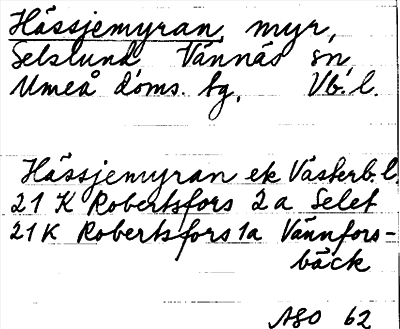 Hässjemyran, myr,
Selslund Vännäs sn
Umeå doms. tg, Vb. l.
Hässjemyran ek Västerb. l.
21 K Robertsfors 2a Selet
21K Robertsfors 1a Vännfors-
bäck
ASO 62